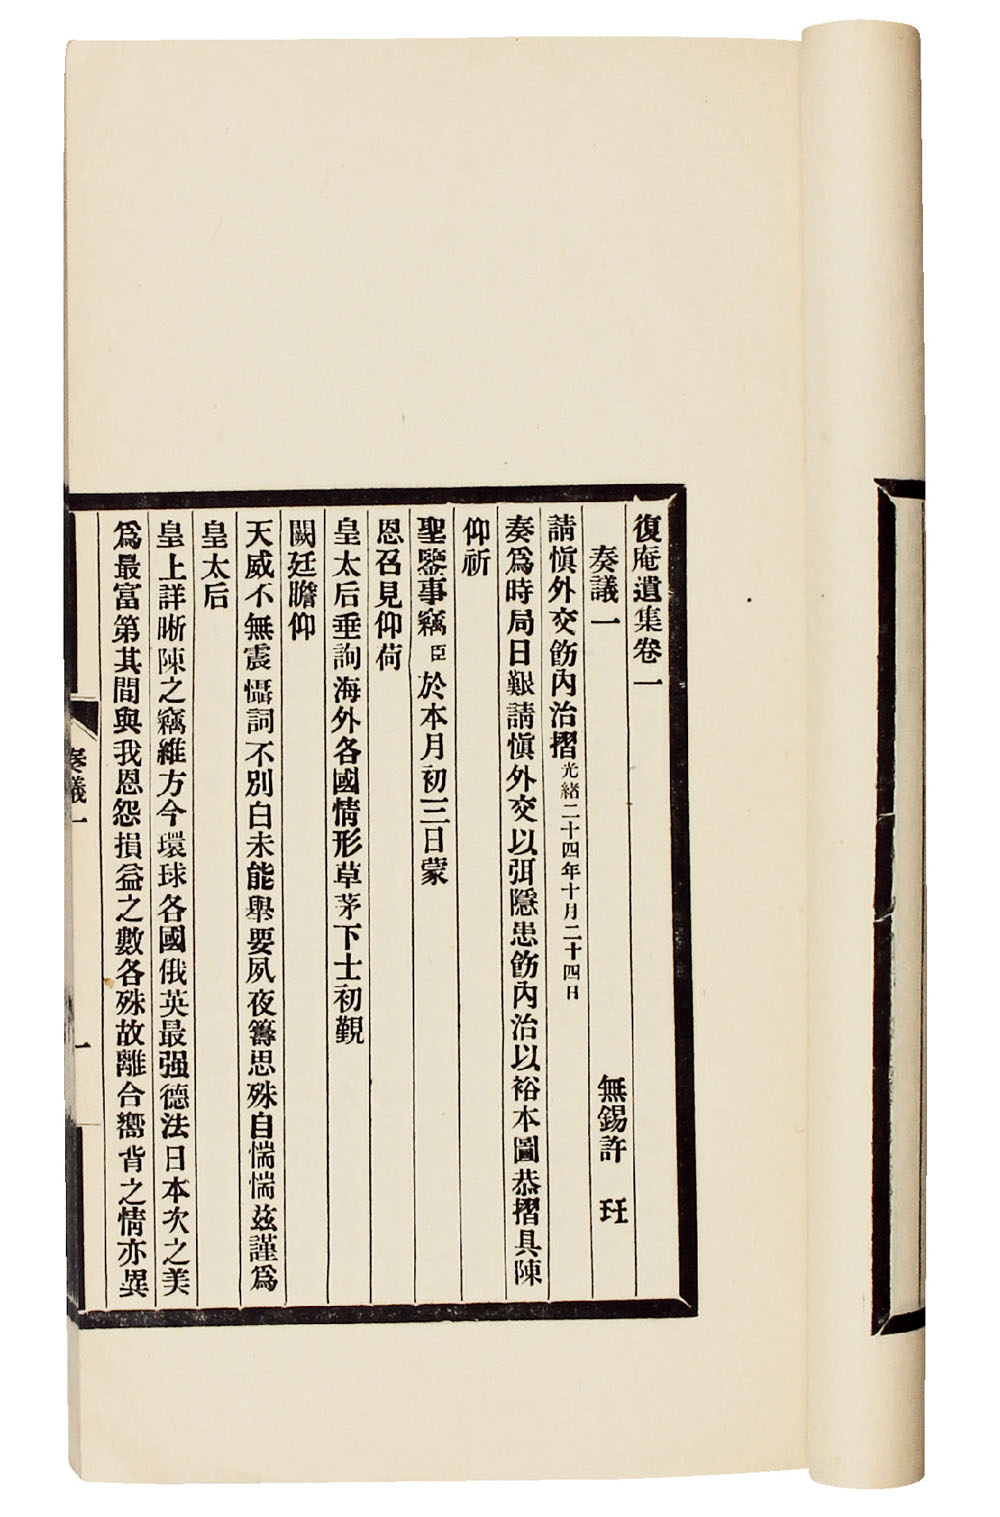 復庵遺集卷一
奏議一　無錫許　珏
請愼外交飭內治摺光緒二十四年十月二十四日
奏爲時局日艱請愼外交以弭隱患飭內治以裕本圖恭摺具陳
仰祈
聖鑒事竊臣於本月初三日蒙
恩召見仰荷
皇太后垂詢海外各國情形草茅下士初覲
闕廷瞻仰
天威不無震慴詞不別白未能舉要夙夜籌思殊自惴惴茲謹爲
皇太后
皇上詳晰陳之竊維方今環球各國俄英最强德法日本次之美
爲最富第其間與我恩怨損益之數各殊故離合嚮背之情亦異
奏議一
一